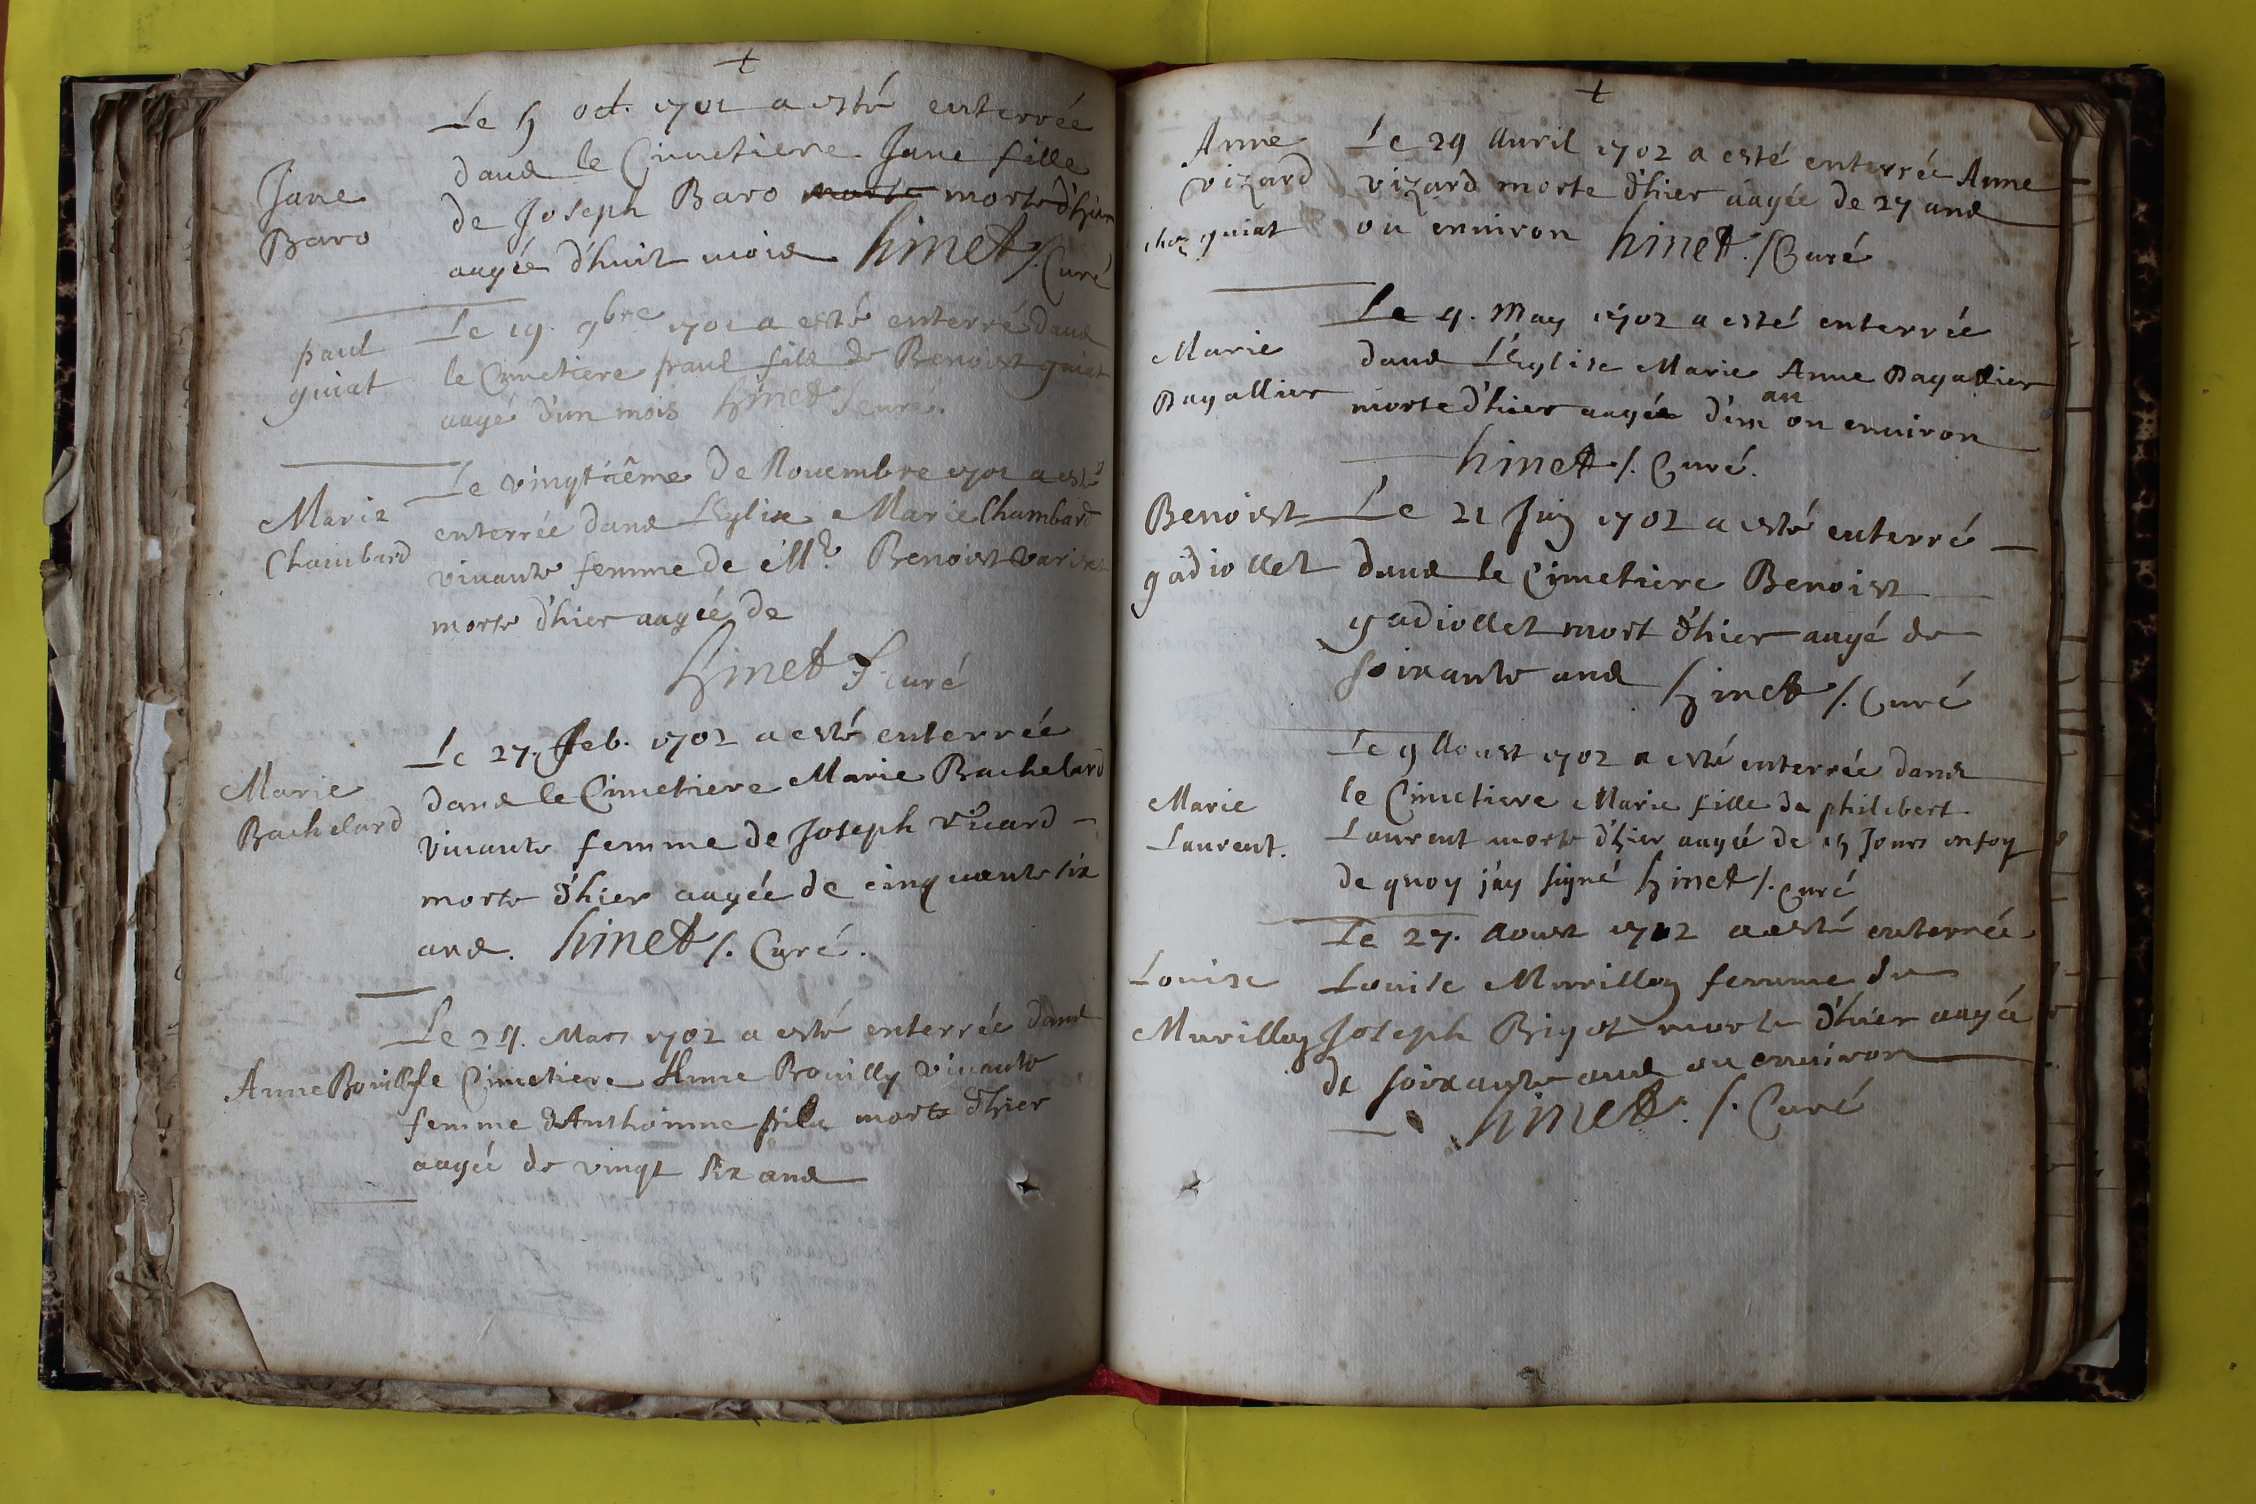 Jane
Baro
Le 5 oct. 1701 a esté enterrée
dans le Cimetiere Jane fille
de Joseph Baro morte morte d'hier
aagée d'huit mois hinet /. Curé
paul
guiat
Le 19. 9bre 1701 a esté enterré dans
le Cimetiere paul fils de Benoist guiat
aagé d'un mois hinet /. curé.
Marie
Chambard
Le vingtiême de Nouembre 1701 a esté
enterrée dans L'Eglise Marie Chambard
viuante femme de Mr. Benoist
morte d'hier aagée de
hinet /. curé
Marie
Bachelard
Le 27. feb. 1702 a esté enterrée
dans le Cimetiere Marie Bachelard
viuante femme de Joseph
morte d'hier aagée de cinquante six
ans. hinet /. Curé.
Anne Bouilly
Le Mars 1702 a esté enterrée dans
le Cimetiere Anne Bouilly viuante
femme d'Anthoinne morte d'hier
aagée de vingt six ans
Anne
vizard
chez guiat
Le 29 Auril 1702 a esté enterrée Anne
vizard morte d'hier aagée de 27 ans
ou enuiron hinet. /. Curé
Marie
Bagallier
Le 9. May 1702 a esté enterrée
dans L'Eglise Marie Anne Bagallier
morte d'hier aagée d'un an ou enuiron
hinet /. Curé.
Benoist
gadiollet
Le 21 Juin 1702 a esté enterré
dans le Cimetiere Benoist
gadiollet mort d'hier aagé de
soixante ans hinet /. Curé
Marie
Laurent.
Le 9 Aoust 1702 a esté enterrée dans
le Cimetiere Marie fille de philibert
Laurent morte d'hier aagée de 15 Jours en foy
de quoy j'ay signé hinet /. Curé
Louise
Murilloy
Le 27. Aoust 1702 a esté enterrée
Louise Murilloy femme de
Joseph Bigot morte d'hier aagée
de soixante ans ou enuiron
hinet. /. Curé